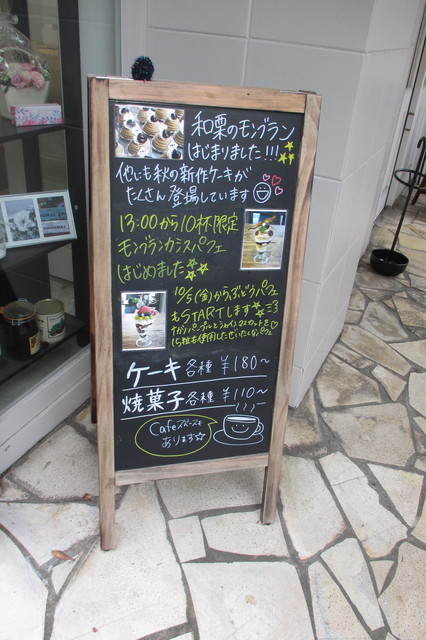 和栗のモンブラン
はじまりました!!!
他にも秋の新作ケーキが
たくさん登場しています
13:00から10杯限定
モンブランカシスパフェ
はじめました☆
10/5(金)からぶどうパフェ
もSTARTします☆
15粒も使用した
ケーキ各種 ¥180~
焼菓子各種 ¥110~
Cafeスペースも
あります☆